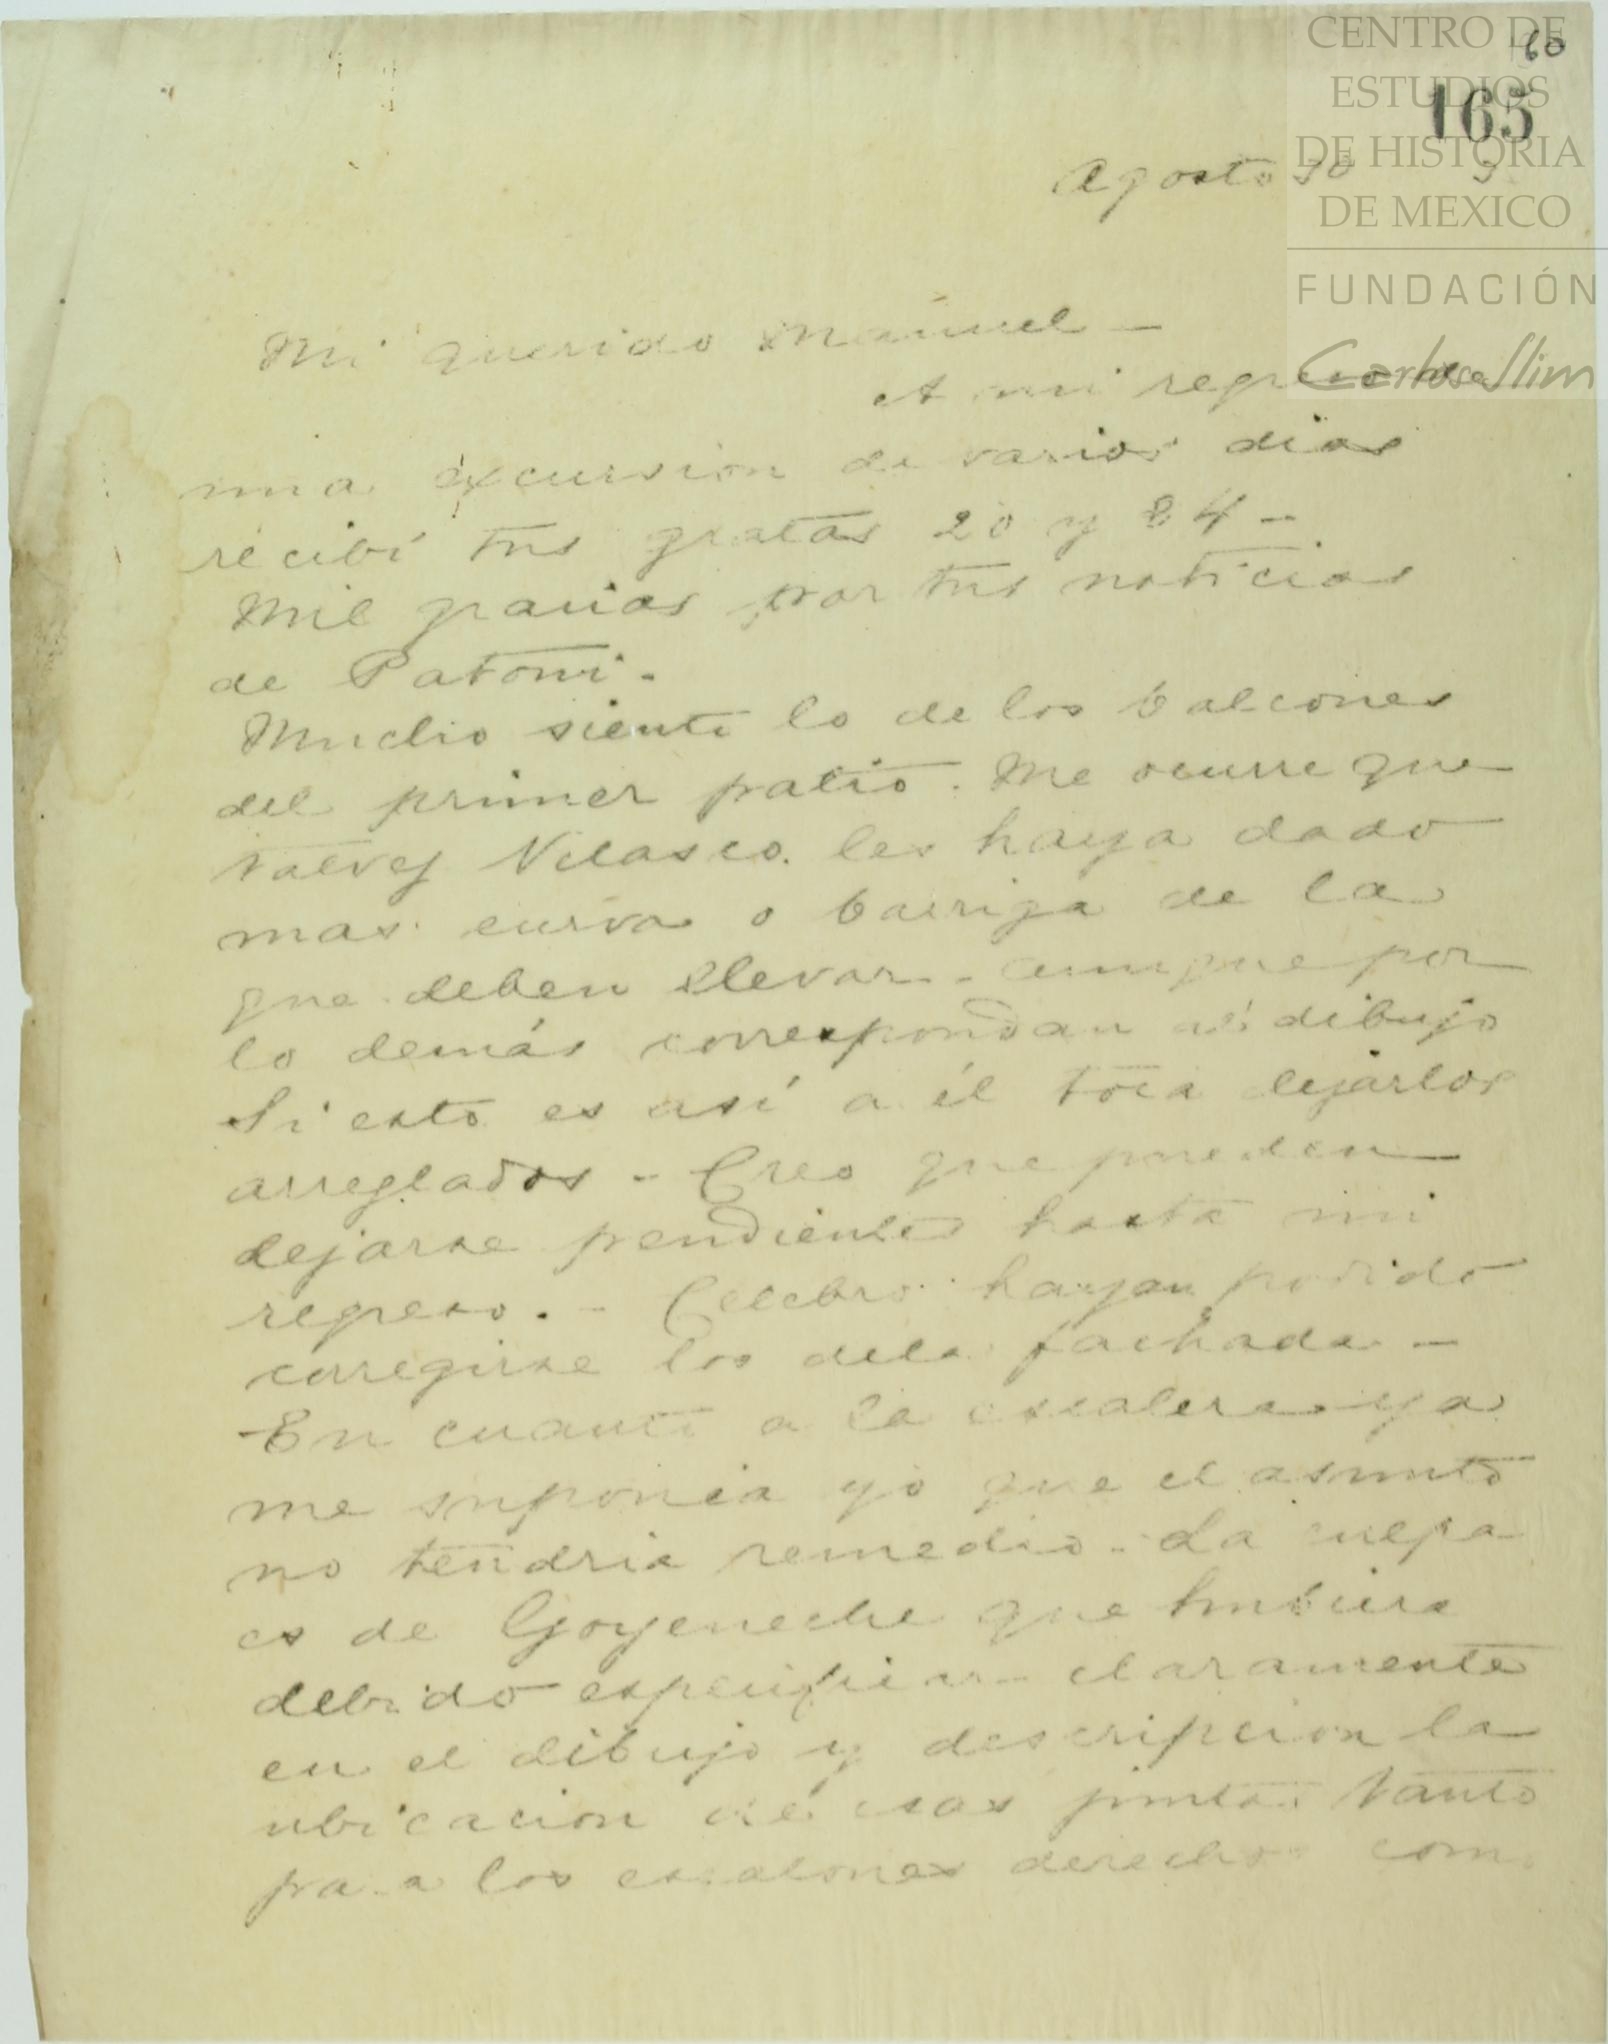 CENTRO DE
ESTUDIOS
DE HISTORIA
DE MEXICO
FUNDACIÓN
Carlos Slim
60
165
Agosto 30 9
Mi querido Manuel —
A mi regreso de
una excursion de varios dias
recibí tus gratas 20 y 24 —
Mil gracias por tus noticias
de Patoni -
Mucho siento lo de los balcones
del primer patio. Me ocurre que
talvez Velasco les haya dado
mas curva o barriga de la
que deben llevar - aunque por
lo demás correspondan al dibujo
Si esto es así a él toca dejarlos
arreglados - Creo que pueden
dejarse pendientes hasta mi
regreso. - Celebro hayan podido
corregirse los dela fachada -
En cuanto a la escalera ya
me suponia yo que el asunto
no tendria remedio - La culpa
es de Goyeneche que hubiera
debido especificar claramente
en el dibujo y descripcion la
ubicacion de esas juntas tanto
para los escalones derechos como